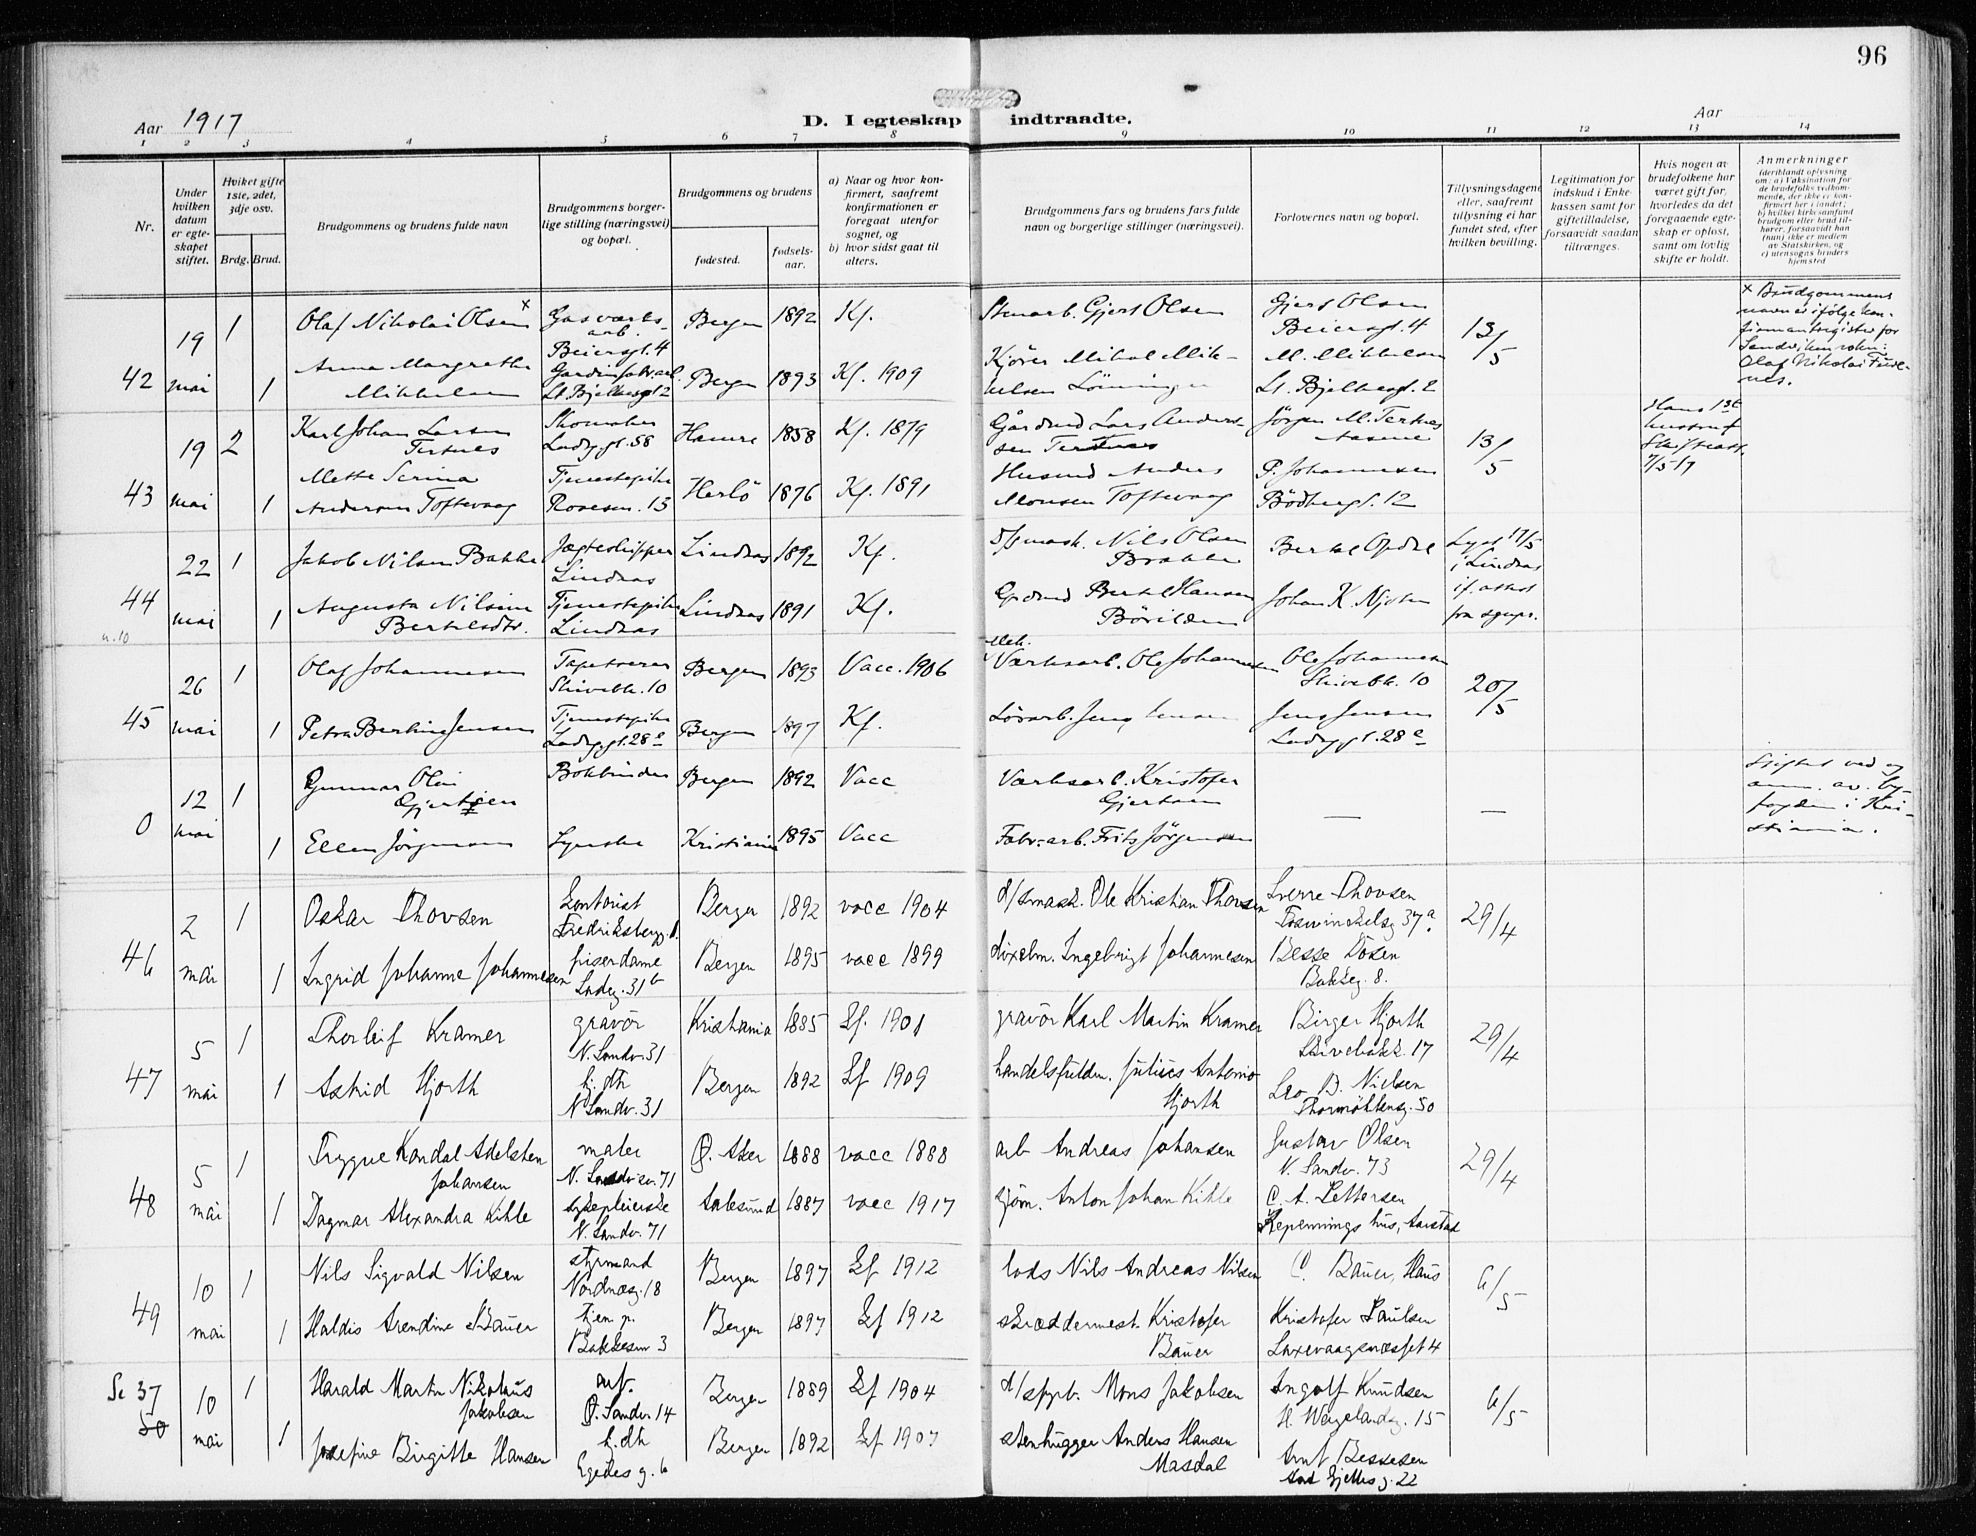 96
Aar 1917
D. I egteskap indtraadte.
Aar
1 2 3 4 5 6 7 8 9 10 11 12 13 14
Nr.
Under hvilken datum er egteskapet stiftet.
Hviket gifte 1ste, 2det, 3dje osv.
Brdg. Brud.
Brudgommens og brudens fulde navn
Brudgommens borgerlige stilling (næringsvei) og bopæl.
Brudgommens og brudens
fødested.
fødselsaar.
a) Naar og hvor konfirmert, saafremt konfirmationen er foregaat utenfor sognet, og
b) hvor sidst gaat til alters.
Brudgommens fars og brudens fars fulde navn og borgerlige stillinger (næringsvei).
Forlovernes navn og bopæl.
Tillysningsdagene eller, saafremt tillysning ei har fundet sted, efter hvilken bevilling.
Legitimation for indskud i Enkekassen samt for giftetilladelse, forsaavidt saadan tiltrænges.
Hvis nogen av brudefolkene har været gift før, hvorledes da det foregaaende egteskap er opløst, samt om lovlig skifte er holdt.
Anmerkninger
42 19 mai 1 Olaf Nikolai Olsen x Gasverksarb. Beiersgt. 4 Bergen 1892 Kf. Gjert Olsen Gjert Olsen Beiersgt. 4 13/5
x Brudgommens navn er ifølge konfirmantregister for Sandviken sokn: Olaf Nikolai
1 Anna Margrethe Mikkelsen Bergen 1893 Kf. 1909 Kjører Mikal Mikkelsen Lönningen M. Mikkelsen
43 19 mai 2 Karl Johan Larsen Tertnes Skomaker Ladegt. 58 Hamre 1858 Kf. 1879 Gårdmd Lars Andersen Tertnes Jörgen M. Tertnes 13/5 Hans 1st hustru Skifteatt. 7/5 17
1 Mette Serina Andersen Toftevaag Tjenestepike Rosesm. 13 Herlö 1876 Kf. 1891 Husmd Anders Monsen Toftevaag P. Johannesen Bödkergt. 12
44 22 mai 1 Jakob Nilsen Bakke Jægteskipper Lindaas Lindaas 1892 Kf. Nils Olsen Bertel Opdal Lyst 17/5 i Lindaas if. attest fra sognepr.
n. 10
1 Augusta Nilsine Bertelsdtr. Tjenestepike Lindaas Lindaas 1891 Kf. Gårdmd Bertel Hansen Johan K.
45 26 mai 1 Olaf Johannesen Tapetserer Skivebk. 10 Bergen 1893 Vacc. 1906 Mek. Værksarb. Ole Johannesen Ole Johannesen Skivebk. 10 20/5
1 Petra Bertine Jensen Tjenestepike Ladeggt. 28 e Bergen 1897 Kf. Jens Jensen Jens Jensen Ladeggt. 28 e
0 12 mai 1 Gunnar Olai Gjertsen Bokbinder Bergen 1892 Vacc Værksarb. Kristofer Gjertsen — — Stiftet ved og anm. av byfogden i Kristiania.
1 Ellen Jörgensen Syerske Kristiania 1895 Vacc Fabr.arb. Frits Jörgensen
46 2 mai 1 Oskar Thovsen kontorist Fredriksbergg. Bergen 1892 vacc 1904 d/smask. Ole Kristian Thovsen Sverre Thovsen 37 a 29/4
1 Ingrid Johanne Johannesen friserdame Ladeg. 31 b Bergen 1895 vacc 1899 Ingebrigt Johannesen Besse Dosen Bakkeg. 8.
47 5 mai 1 Thorleif Kramer gravör N. Sandv. 31 Kristiania 1885 kf. 1901 gravör Karl Martin Kramer Birger Hjorth Skivebakk. 17 29/4
1 Astrid Hjorth hj. dtr N Sandv. 31 Bergen 1892 kf 1909 handelsfuldm. Julius Antonio Hjorth Leo B. Nielsen Thormöhlensg. 50
48 5 mai 1 Trygve Kandal Adelsten Johansen maler N. Sandv. 71 Ø. Aker 1888 vacc 1888 arb Andreas Johansen Gustav Olsen N. Sandv. 73 29/4
1 Dagmar Alexandra Kihle sykepleierske N. Sandv. 71 Aalesund 1887 vacc 1917 sjöm. Anton Johan Kihle C. A. Pettersen Repennings hus, Aarstad
49 10 mai 1 Nils Sigvald Nilsen styrmand Nordnæsg. 18 Bergen 1897 kf 1912 lods Nils Andreas Nilsen C. Bauer, Haus 6/5
1 Haldis Arendine Bauer tjen.p. Bakkesm 3 Bergen 1897 kf 1912 skræddermest. Kristofer Bauer Kristofer Paulsen Laxevaagsnæsset 4
Se 37
50 10 mai 1 Harald Martin Nikolaus Jakobsen arb. Ø. Sandv. 14 Bergen 1889 kf 1904 Mons Jakobsen Ingolf Knudsen H. Wergelandsg. 15 6/5
1 Josefine Birgitte Hansen hj. dtr Egedes g. 6 Bergen 1892 kf 1907 stenhugger Anders Hansen Masdal Arnt Bessesen Gjelles g. 22